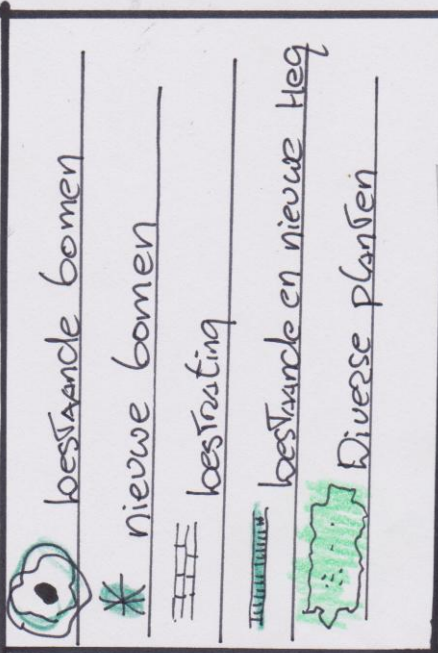 bestaande bomen
nieuwe bomen
bestrating
bestaande en nieuwe Heg
Diverse planten